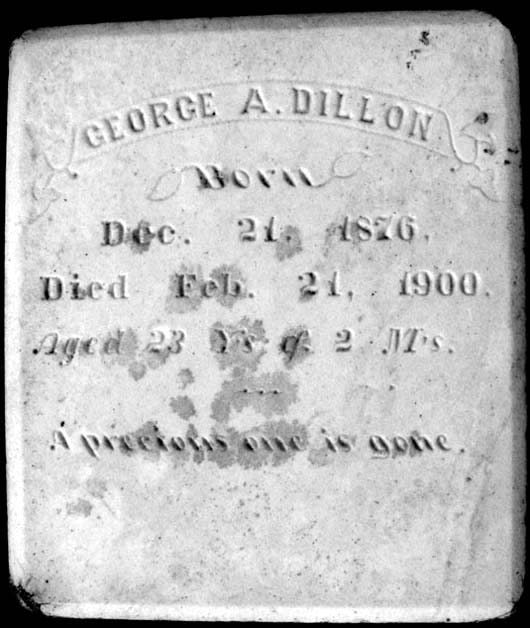 GEORGE A. DILLON
Born
Dec. 21, 1876.
Died Feb. 21, 1900.
Aged 23 Ys & 2 Ms.
A precious one is gone.